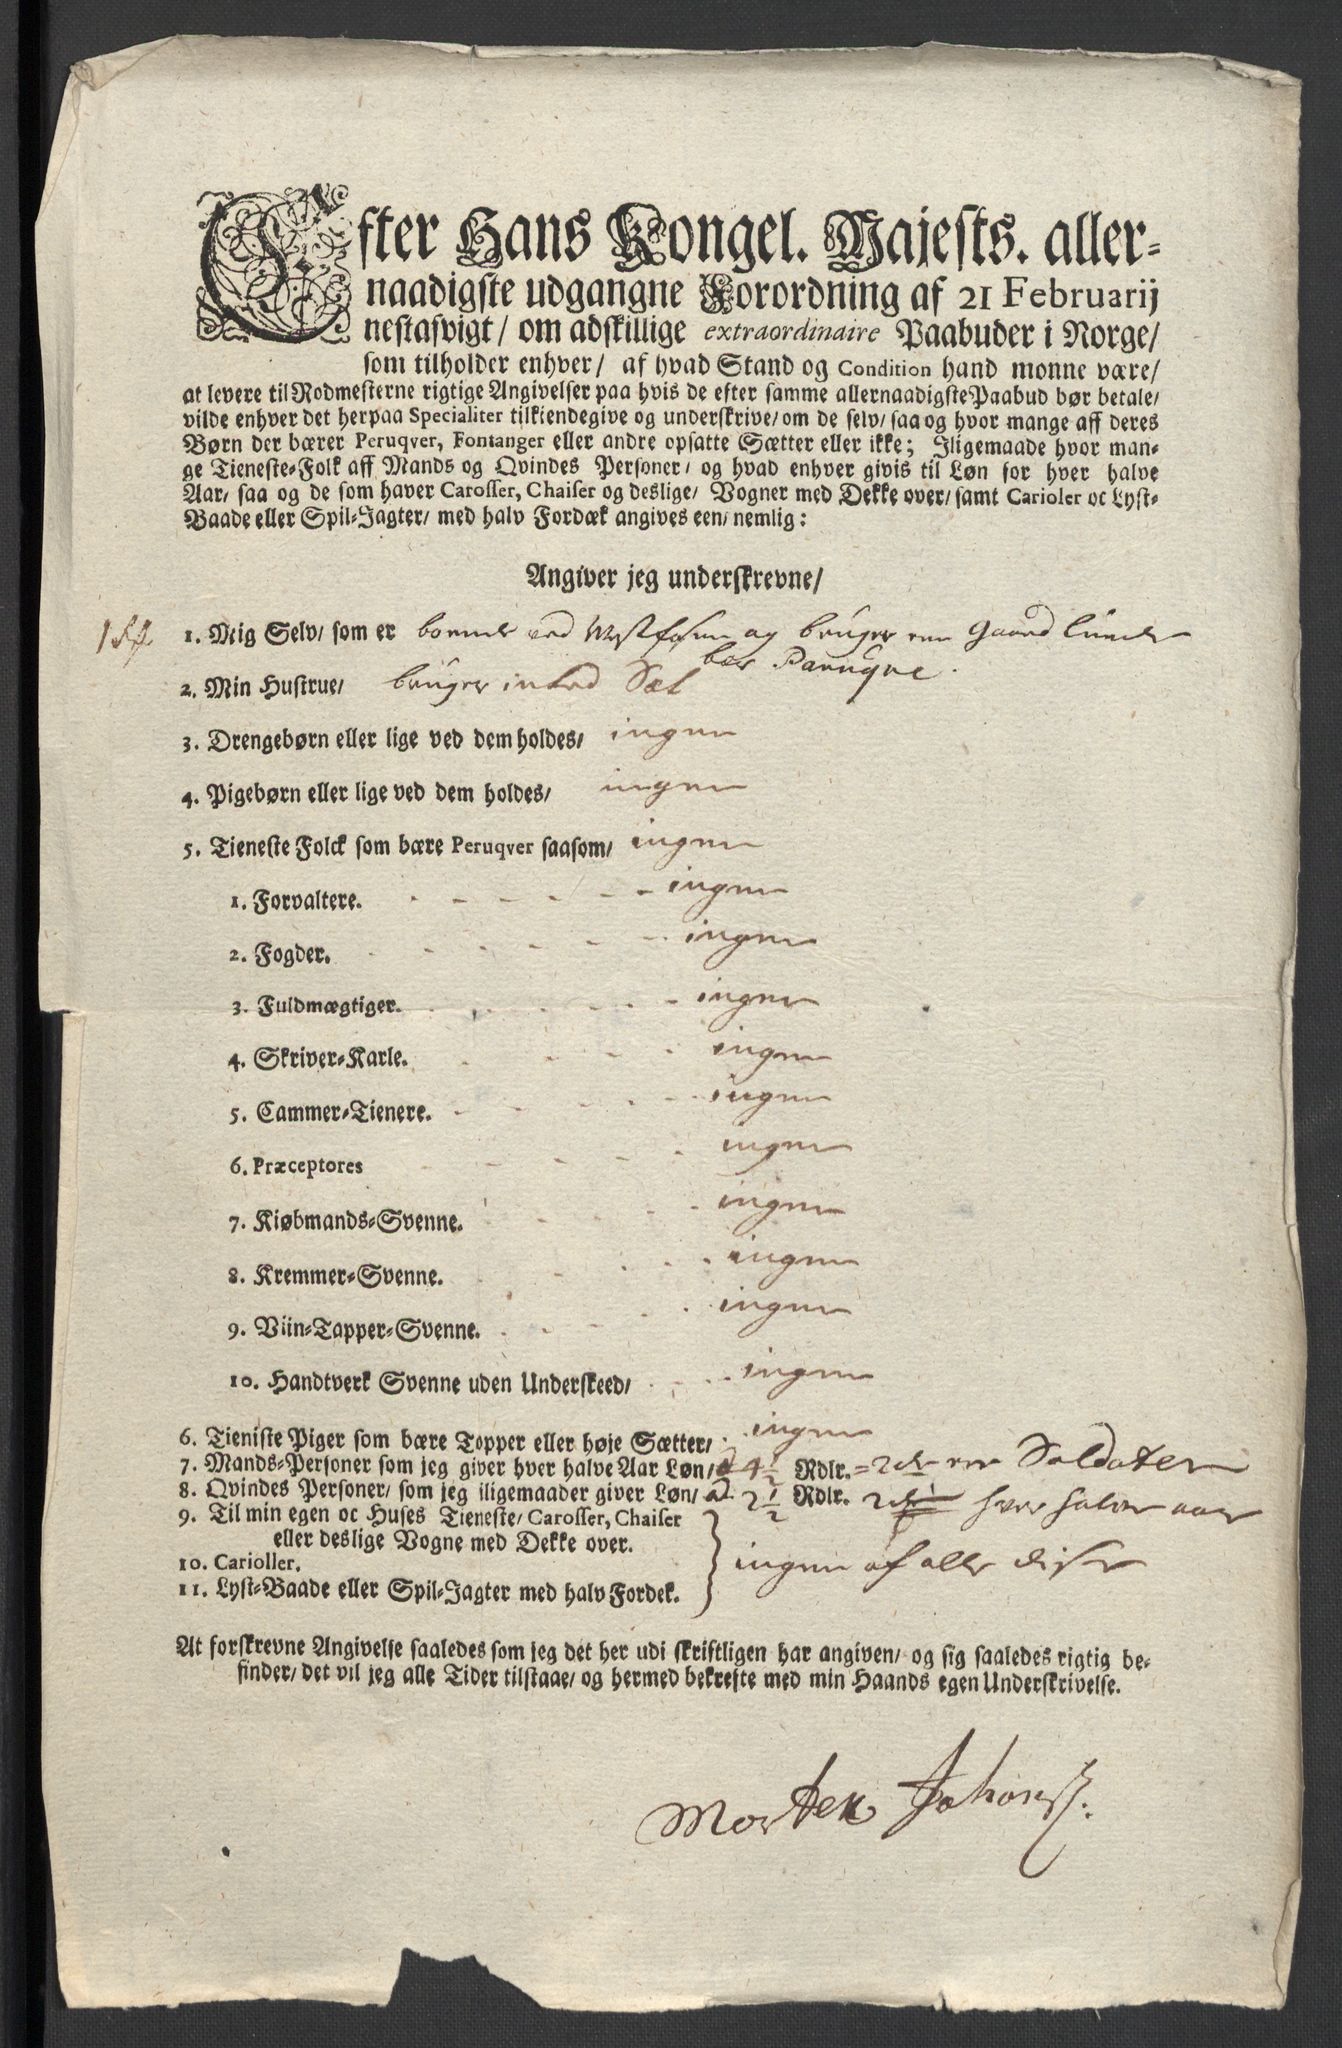 Efter Hans Kongel. Majests. aller-
naadigste udgangne Forordning af 21 Februarij
nestasvigt/ om adskillige extraordinaire Paabuder i Norge/
som tilholder enhver/ af hvad Stand og Condition hand monne være/
at levere til Rodmesterne rigtige Angivelser paa hvis de efter samme allernaadigste Paabud bør betale/
vilde enhver det herpaa Specialiter tilkiendegive og underskrive/ om de selv/ saa og hvor mange aff deres
Børn der bærer Peruqver, Fontanger eller andre opsatte Sætter eller ikke; Iligemaade hvor man-
ge Tieneste-Folk aff Mands og Qvindes Personer/ og hvad enhver givis til Løn for hver halve
Aar/ saa og de som haver Carosser, Chaiser og deslige/ Vogner med Dekke over/ samt Carioler oc Lyst-
Baade eller Spil-Jagter/ med halv Fordæk angives een/ nemlig:
Angiver jeg underskrevne/
1. Mig Selv/ som er boende ved og bruger en Gaard
bær Paruqve.
2. Min Hustrue/ bruger inted Sæt
3. Drengebørn eller lige ved dem holdes/ ingen
4. Pigebørn eller lige ved dem holdes/ ingen
5. Tieneste Folck som bære Peruqver saasom/ ingen
1. Forvaltere. ingen
2. Fogder. ingen
3. Fuldmægtiger. ingen
4. Skriver-Karle. ingen
5. Cammer-Tienere. ingen
6. Præceptores ingen
7. Kiøbmands-Svenne. ingen
8. Kremmer-Svenne. ingen
9. Viin-Tapper-Svenne. ingen
10. Handtverk Svenne uden Underskeed/ ingen
6. Tieniste Piger som bære Topper eller høje Sætter/ ingen
7. Mands-Personer som jeg giver hver halve Aar Løn/ 4 1/2 Rdlr. = en Soldater
8. Qvindes Personer/ som jeg iligemaader giver Løn/ 2 1/2 Rdlr. hver halve aar
9. Til min egen oc Huses Tieneste/ Carosser, Chaiser
eller deslige Vogne med Dekke over.
10. Carioller. ingen af alle disse
11. Lyst-Baade eller Spil-Jagter med halv Fordek.
At forskrevne Angivelse saaledes som jeg det her udi skriftligen har angiven/ og sig saaledes rigtig be-
finder/ det vil jeg alle Tider tilstaae/ og hermed bekrefte med min Haands egen Underskrivelse.
Morten Johanss.